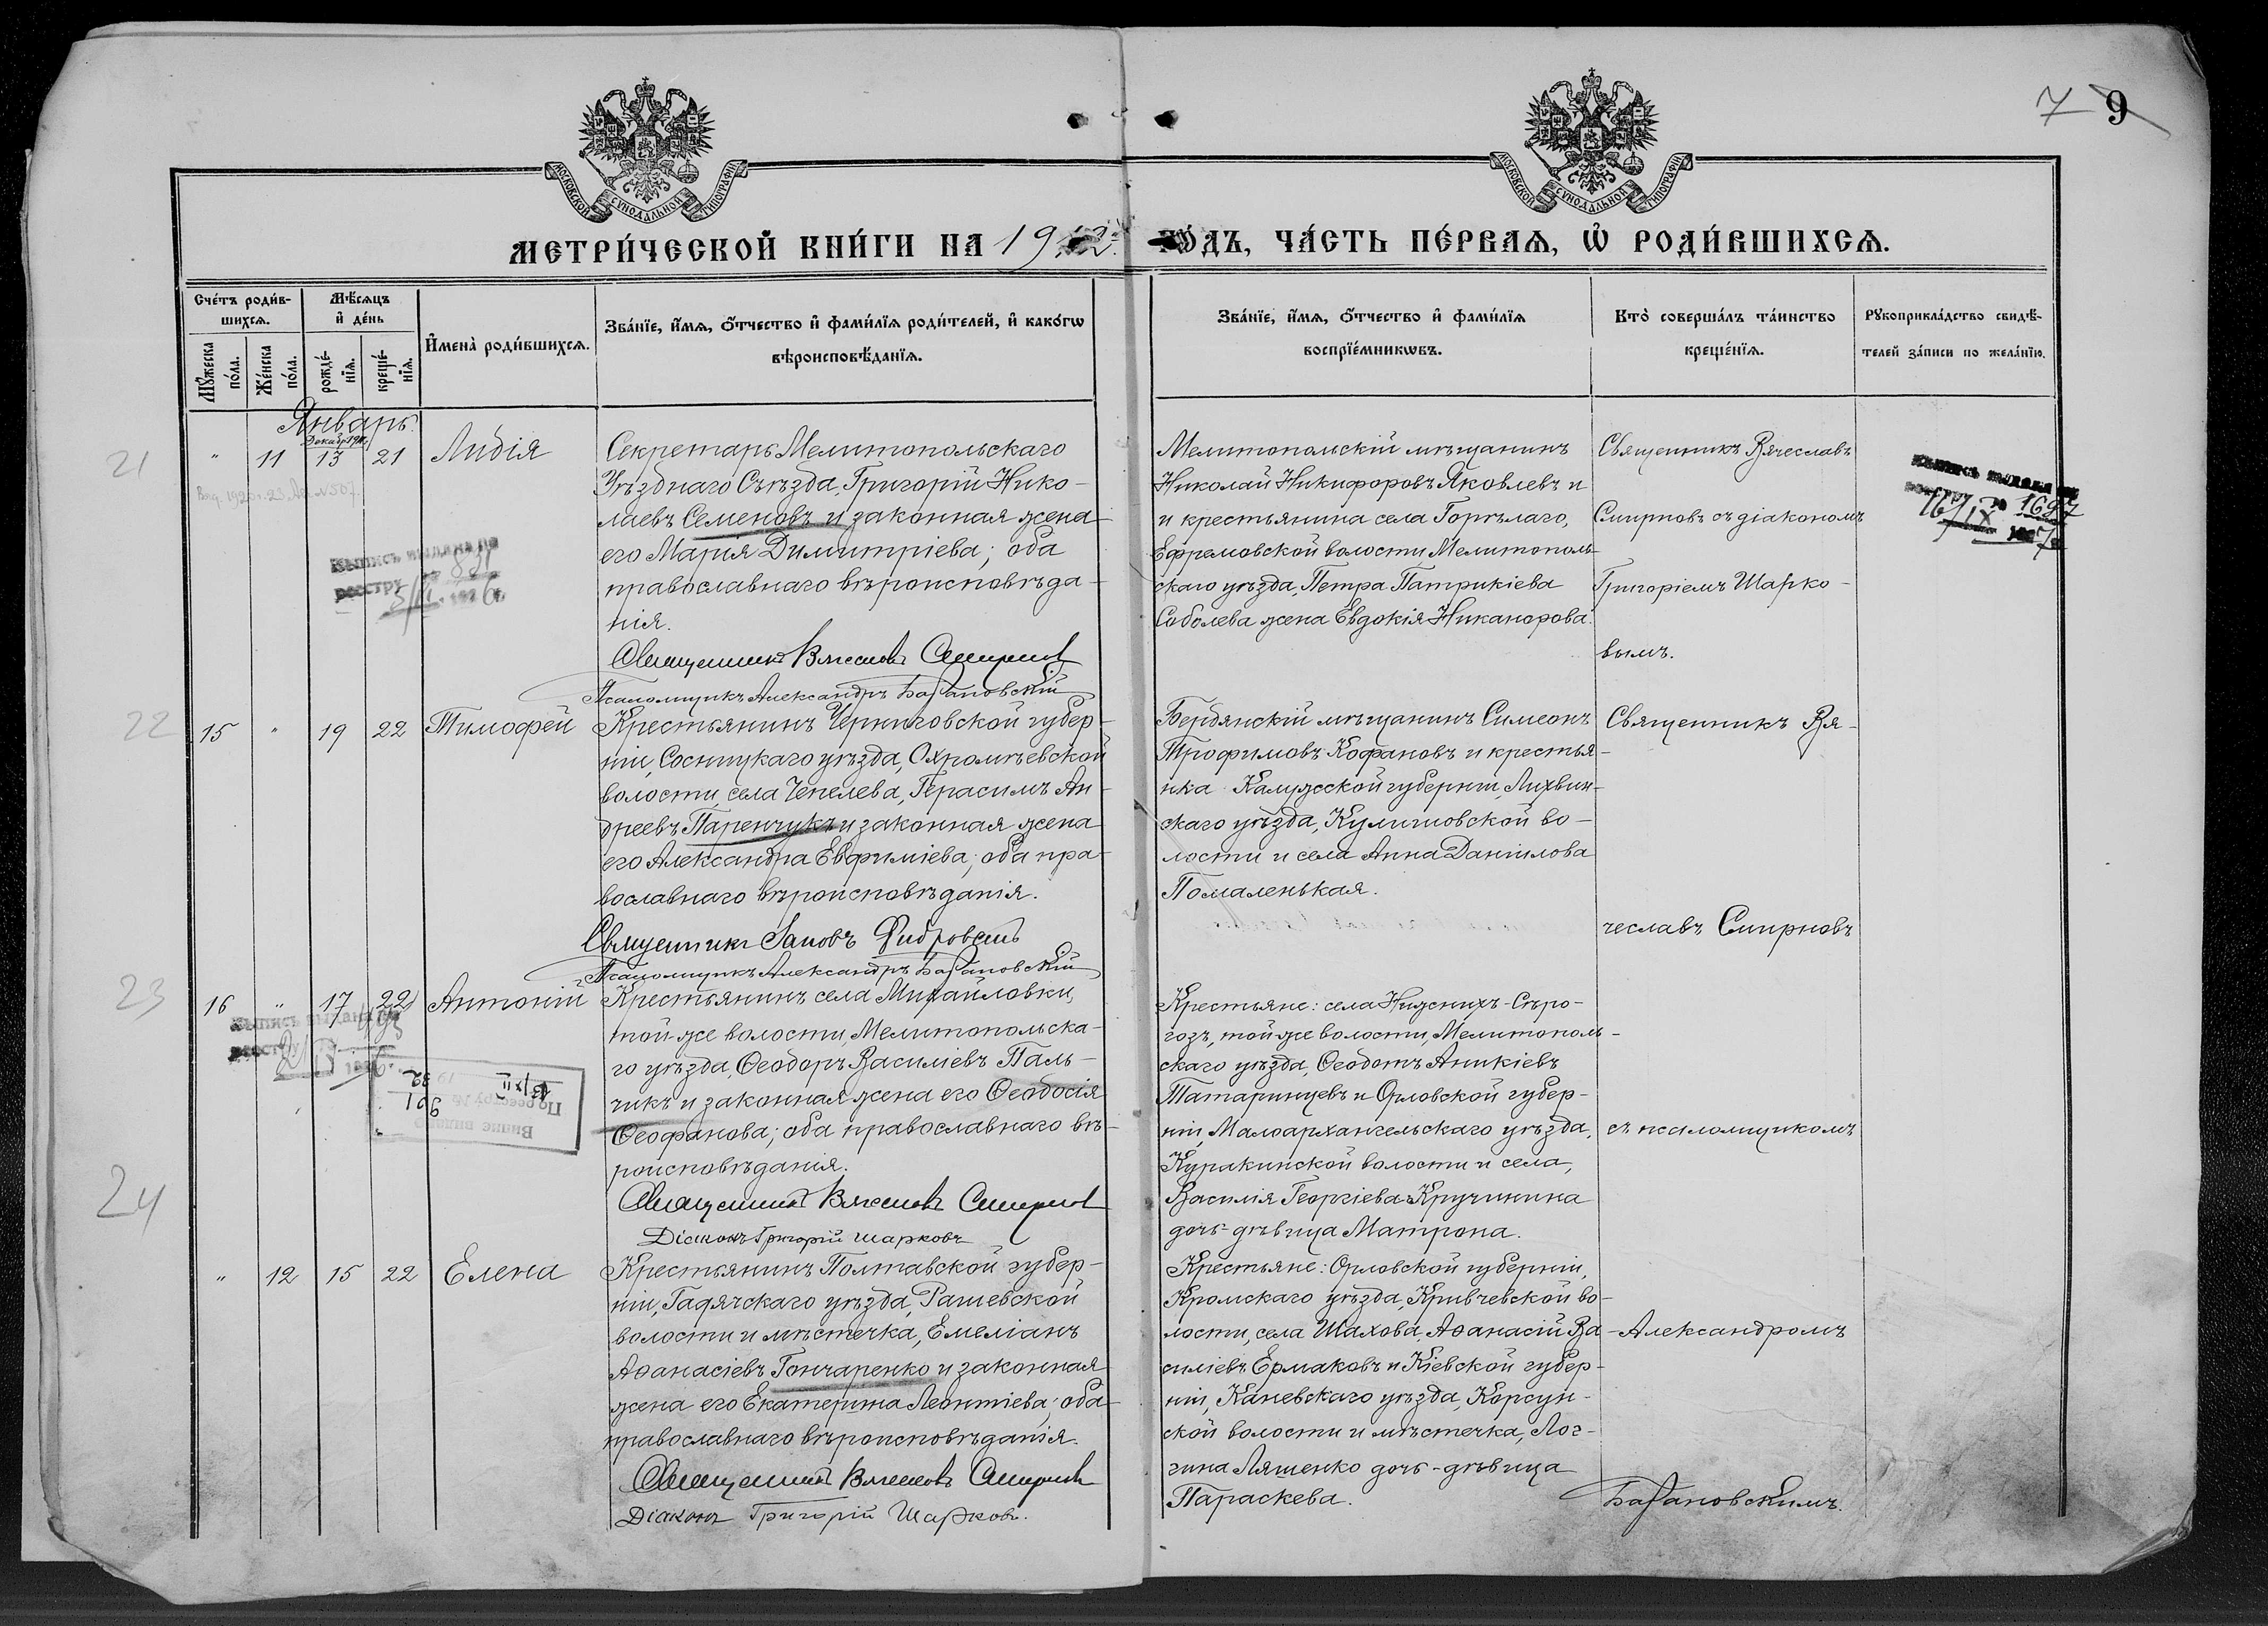 7 9
МОСКОВСКОЙ СУНОДАЛЬНОЙ ТИПОГРАФІИ
МОСКОВСКОЙ СУНОДАЛЬНОЙ ТИПОГРАФІИ
МЕТРИ́ЧЕСКОЙ КНИ́ГИ НА 1912
ГО́ДЪ, ЧА́СТЬ ПЕ́РВАѦ, Ѡ҆ РОДИ́ВШИХСѦ.
Сче́тъ роди́в-
шихсѧ.
Мꙋ́жеска
по́ла.
Же́нска
по́ла.
Мѣ́сѧцъ
и҆ де́нь
рожде́-
нїѧ.
креще́-
нїѧ.
И҆мена̀ роди́вшихсѧ.
Зва́нїе, и҆́мѧ, ѻ҆́тчество и҆ фами́лїѧ роди́телей, и҆ како́гѡ
вѣроисповѣ́данїѧ.
Зва́нїе, и҆́мѧ, ѻ҆́тчество и҆ фами́лїѧ
воспрїе́мникѡвъ.
Кто̀ соверша́лъ та́инство
креще́нїѧ.
Рꙋкоприкла́дство свидѣ́-
телей за́писи по жела́нїю.
Январь.
Декабр. 1911.
21
" 11 13 21 Лидія
Секретарь Мелитопольскаго
Уѣзднаго Съѣзда, Григорій Нико-
лаевъ Семеновъ и законная жена
его Марія Димитріева; оба
православнаго вѣроисповѣда-
нія.
Священникъ Вячеславъ Смирновъ
Псаломщикъ Александръ Барановскій
Выпись выдана по
реестру
Мелитопольскій мѣщанинъ
Николай Никифоровъ Яковлевъ и
и крестьянина села Горѣлаго,
Ефремовской волости, Мелитополь-
скаго уѣзда, Петра Патрикіева
Соболева жена Евдокія Никанорова.
Священникъ Вячеславъ
Смирновъ съ діакономъ
Григоріемъ Шарко-
вымъ.
выпись выдана по
реестру № 1697
16/IX 1927
22
15 " 19 22 Тимофей
Крестьянинъ Черниговской губер-
ніи, Сосницкаго уѣзда, Охромѣевской
волости, села Чепелева, Герасимъ Ан-
дреевъ Паренчукъ и законная жена
его Александра Евфиміева; оба пра-
вославнаго вѣроисповѣданія.
Священникъ
Псаломщикъ Александръ Барановскій
Бердянскій мѣщанинъ Симеонъ
Трофимовъ Кофановъ и крестья-
нка Калужской губерніи, Лихвин-
скаго уѣзда, Кулишовской во-
лости и села Анна Даніилова
Помаленькая.
Священникъ Вя-
чеславъ Смирновъ
23
16 " 17 22 Антоній
Крестьянинъ села Михайловки,
той-же волости, Мелитопольска-
го уѣзда, Ѳеодоръ Василіевъ Паль-
чикъ и законная жена его Ѳеодосія
Ѳеофанова; оба православнаго вѣ-
роисповѣданія.
Священникъ Вячеславъ Смирновъ
Діаконъ Григорій Шарковъ
выпись выдана по
реестру
По реестру № 901
Крестьяне: села Нижнихъ-Сѣро-
гозъ, той же волости, Мелитополь-
скаго уѣзда, Ѳеодотъ Аникіевъ
Татаринцевъ и Орловской губер-
ніи, Малоархангельскаго уѣзда,
Куракинской волости и села,
Василія Георгіева Кручинина
дочь-дѣвица Матрона.
съ псаломщикомъ
24
" 12 15 22 Елена
Крестьянинъ Полтавской губер-
ніи, Гадячскаго уѣзда, Рашевской
волости и мѣстечка, Емеліанъ
Аѳанасіевъ Гончаренко и законная
жена его Екатерина Леонтіева; оба
православнаго вѣроисповѣданія.
Священникъ Вячеславъ Смирновъ
Діаконъ Григорій Шарковъ.
Крестьяне: Орловской губерніи,
Кромскаго уѣзда, Кривчевской во-
лости, села Шахова, Аѳанасій Ва-
силіевъ Ермаковъ и Кіевской губер-
ніи, Каневскаго уѣзда, Корсун-
ской волости и мѣстечка, Лог-
гина Ляшенко дочь-дѣвица
Параскева.
Александромъ
Барановскимъ.